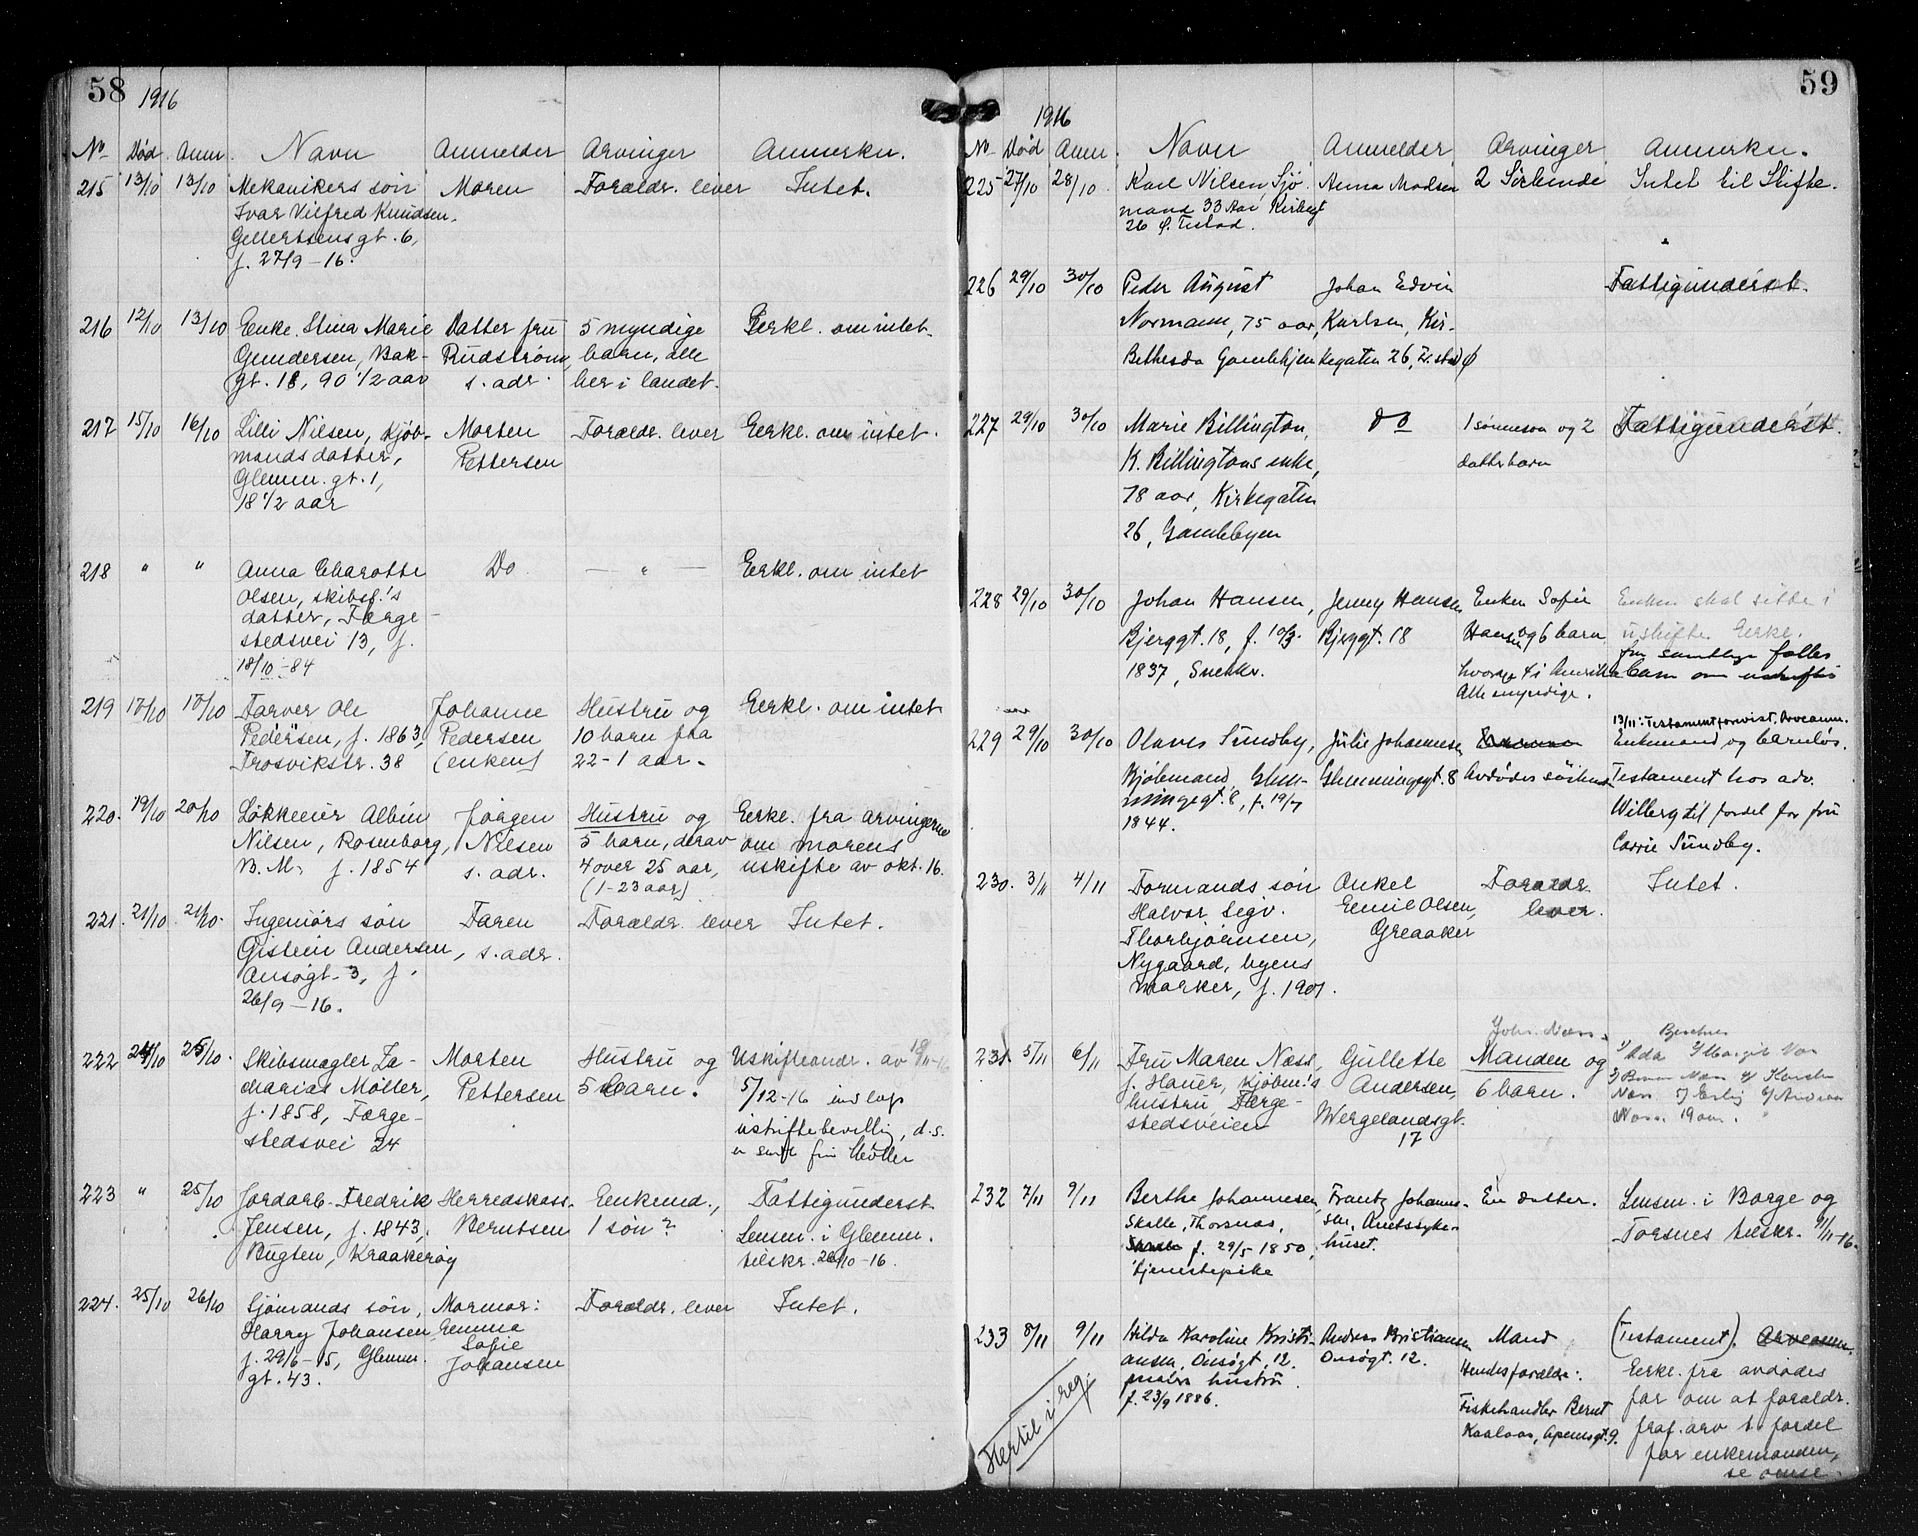 58
1916
No Død Anm. Navn Anmelder Arvinger Anmerkn.
215 13/10 13/10 Mekanikers søn Moren Forældr. lever Intet.
Ivar Vilfred Knudsen,
Gellertsensgt. 6,
f. 27/9 - 16.
216 12/10 13/10 Enke Stina Marie Datter fru 5 myndige Erkl. om intet.
Gundersen, Bak- Rudstrøm, barn, alle
gt. 18, 90 1/2 aar s. adr. her i landet.
217 15/10 16/10 Lilli Nilsen, Kjøb- Morten Forældr. lever Erkl. om intet.
mandsdatter, Pettersen
Glemm. gt. 1,
18 1/2 aar
218 " " Anna Charotte Do — " — Erkl. om intet
Olsen, skibsf.'s
datter, Færge-
stedsvei 13, f.
18/10 - 84
219 17/10 17/10 Farver Ole Johanne Hustru og Erkl. om intet
Pedersen, f. 1863, Pedersen 10 barn fra
Trosvikstr. 38 (enken) 22 - 1 aar.
220. 19/10 20/10 Løkkeeier Albin Jørgen Hustru og Erkl. fra arvingerne
Nilsen, Rosenborg, Nilsen 5 barn, derav om morens
B.M. f. 1854 s. adr. 4 over 25 aar, uskifte av okt. 16.
(1 - 23 aar)
221. 21/10 21/10. Ingeniørs søn Faren Forældr. lever Intet.
Gistein Andersen, s. adr.
Onsøgt. 3, f.
26/9 - 16.
222 24/10 25/10. Skibsmægler Za- Morten Hustru og Uskifteandr. av
charias Möller, Pettersen 5 barn. 5/12-16 innløp
f. 1858, Færge- uskiftebevillig, d.s.
stedsvei 24 er sendt fru Möller
223 " 25/10 Jordarb. Fredrik Herredskass. Enkemd., Fattigunderst.
Jensen, f. 1843, Berntsen 1 søn? Lensm. i Glemm.
Bugten, Kraakerøy tilskr. 26/10 - 16.
224. 25/10 26/10 Sjømands søn, Mormor: Forældr. lever Intet.
Harry Johansen, Emma
f. 29/6 - 15, Glemm. Sofie
gt. 43. Johansen
59
1916
No Død Anm. Navn Anmelder Arvinger Anmerkn.
225 27/10 28/10. Karl Nilsen Sjø- Anna Madsen 2 Söskende Intet til Skifte.
mand 33 Aar Kirkegt
26 Ø. Fr.stad.
226 29/10 30/10 Peder August Johan Edvin Fattigunderst.
Normann, 75 aar, Karlsen, Kir-
Bethesda Gamlehjem kegaten 26, Fr.stad Ø
227 29/10 30/10 Marie Billington, do 1 sønnesøn og 2 Fattigunderst.
K. Billingtons enke, datterbarn
78 aar, Kirkegaten
26, Gamlebyen
228 29/10 30/10 Johan Hansen, Jenny Hansen Enken Sofie Enken skal sitte i
Bjerggt. 18, f. 10/3. Bjerggt. 18 Hansen og 6 barn uskifte. Erkl.
1837, Snekker. hvorav 4 i Amerika fra samtlige fælles
Alle myndige. barn om uskifte
229 29/10 30/10 Olaves Sundby, Julie Johannesen 13/11: Testament forevist. Arveanm.
Kjøbmand, Glem- Glemmingegt. 8 Avdødes søsken Enkemand og barnløs.
mingegt. 8, f. 19/7 Testament hos adv.
1844. Wilberg til fordel for fru
Carrie Sundby.
230. 3/11 4/11 Formands søn Onkel Forældr. Intet.
Halvor Sigv. Emil Olsen, lever.
Thorbjørnsen, Greaaker
Nygaard, byens
marker, f. 1907.
231. 5/11 6/11 Fru Maren Næss, Gullette Manden og
f. Hauer, Kjøbm.'s Andersen, 6 barn.
hustru, Færge- Wergelandsgt.
stedsveien 17
Joh. Næss.
1) Ada
Næss 5) Erling 6) Andreas
Næss. 19 aar.
232 7/11 9/11 Berthe Johannesen, Frantz Johanne- En datter. Lensm. i Borge og
Skalle, Thorsnæs, sen, Amtssyke- Torsnes tilskr. 9/11-16.
f. 29/5 1850, huset.
tjenestepike
233 8/11 9/11 Hilda Karoline Kristi- Andreas Kristiansen Mand (Testament). Arveanm.
ansen, Onsøgt. 12. Onsøgt. 12. Hendes forældre: Erkl. fra avdødes
malers hustru Fiskehandler Bernt far om at forældr.
f. 23/9 1886. Karlsen, Apenesgt. 9. fraf. arv t. fordel
for enkemanden,
se omst.
Hertil i reg.